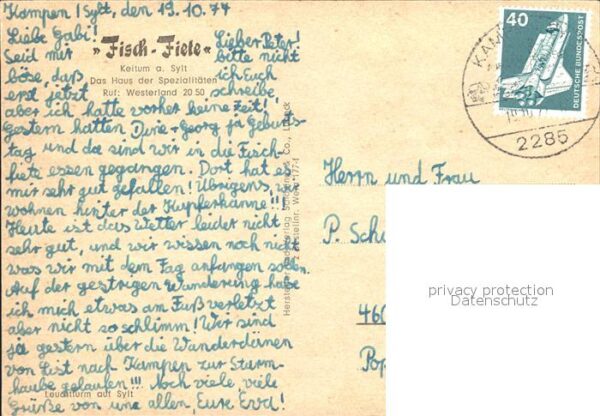 Kampen / Sylt, den 19.10.77
Liebe Gabi! Lieber Peter!
»Fisch-Fiete«
Keitum a. Sylt
Das Haus der Spezialitäten
Ruf: Westerland 20 50
Seid mir bitte nicht
böse, daß ich Euch
erst jetzt schreibe,
aber ich hatte vorher keine Zeit!
Gestern hatten Georg ja Geburts-
tag und da sind wir in die Fisch-
fiete essen gegangen. Dort hat es
mir sehr gut gefallen! Übrigens, wir
wohnen hinter der Kupferkanne!!!
Heute ist das Wetter leider nicht
sehr gut, und wir wissen noch nicht
was wir mit dem Tag anfangen sollen.
Auf der gestrigen Wanderung habe
ich mich etwas am Fuß verletzt
aber nicht so schlimm! Wir sind
ja gestern über die Wanderdünen
von List nach Kampen zur Sturm-
haube gelaufen!!! Noch viele, viele
Leuchtturm auf Sylt
Grüße von uns allen, Eure Eva!
40
DEUTSCHE BUNDESPOST
2285
Herrn und Frau
P.
privacy protection
Datenschutz